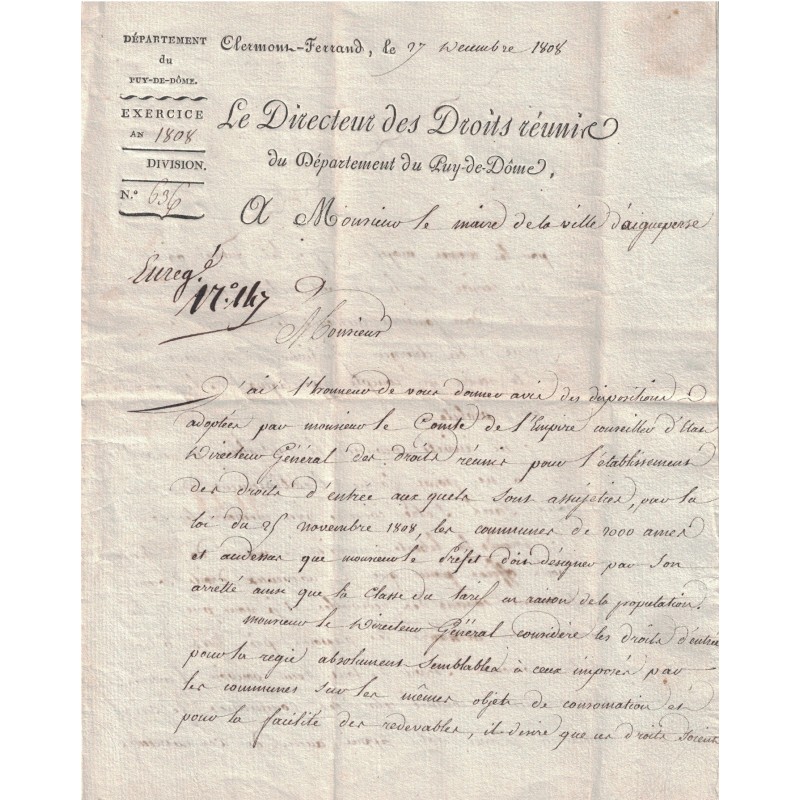 DÉPARTEMENT
du
PUY-DE-DÔME.
EXERCICE
AN 1808
DIVISION.
N.º 636
Clermont-Ferrand, le 27 Decembre 1808
Le Directeur des Droits réunis
du Département du Puy-de-Dôme,
A Monsieur le maire de la ville d'aigueperse
Enreg.é
N.º 147
Monsieur
J'ai l'honneur de vous donner avis des dispositions
adoptées par monsieur le Comte de l'Empire conseiller d'Etat
Directeur Général des droits réunis pour l'établissement
des droits d'entrée aux quels sont assujeties, par la
loi du 25 novembre 1808, les communes de 2000 ames
et audessus que monsieur le Préfet doit désigner par son
arretté ainsi que la Classe du tarif en raison de la population.
monsieur le Directeur Général considère les droits d'entrée
pour la regie absolument semblables à ceux imposés par
les communes sur les mêmes objets de consomation et
pour la facilité des redevables, il désire que ces droits soient